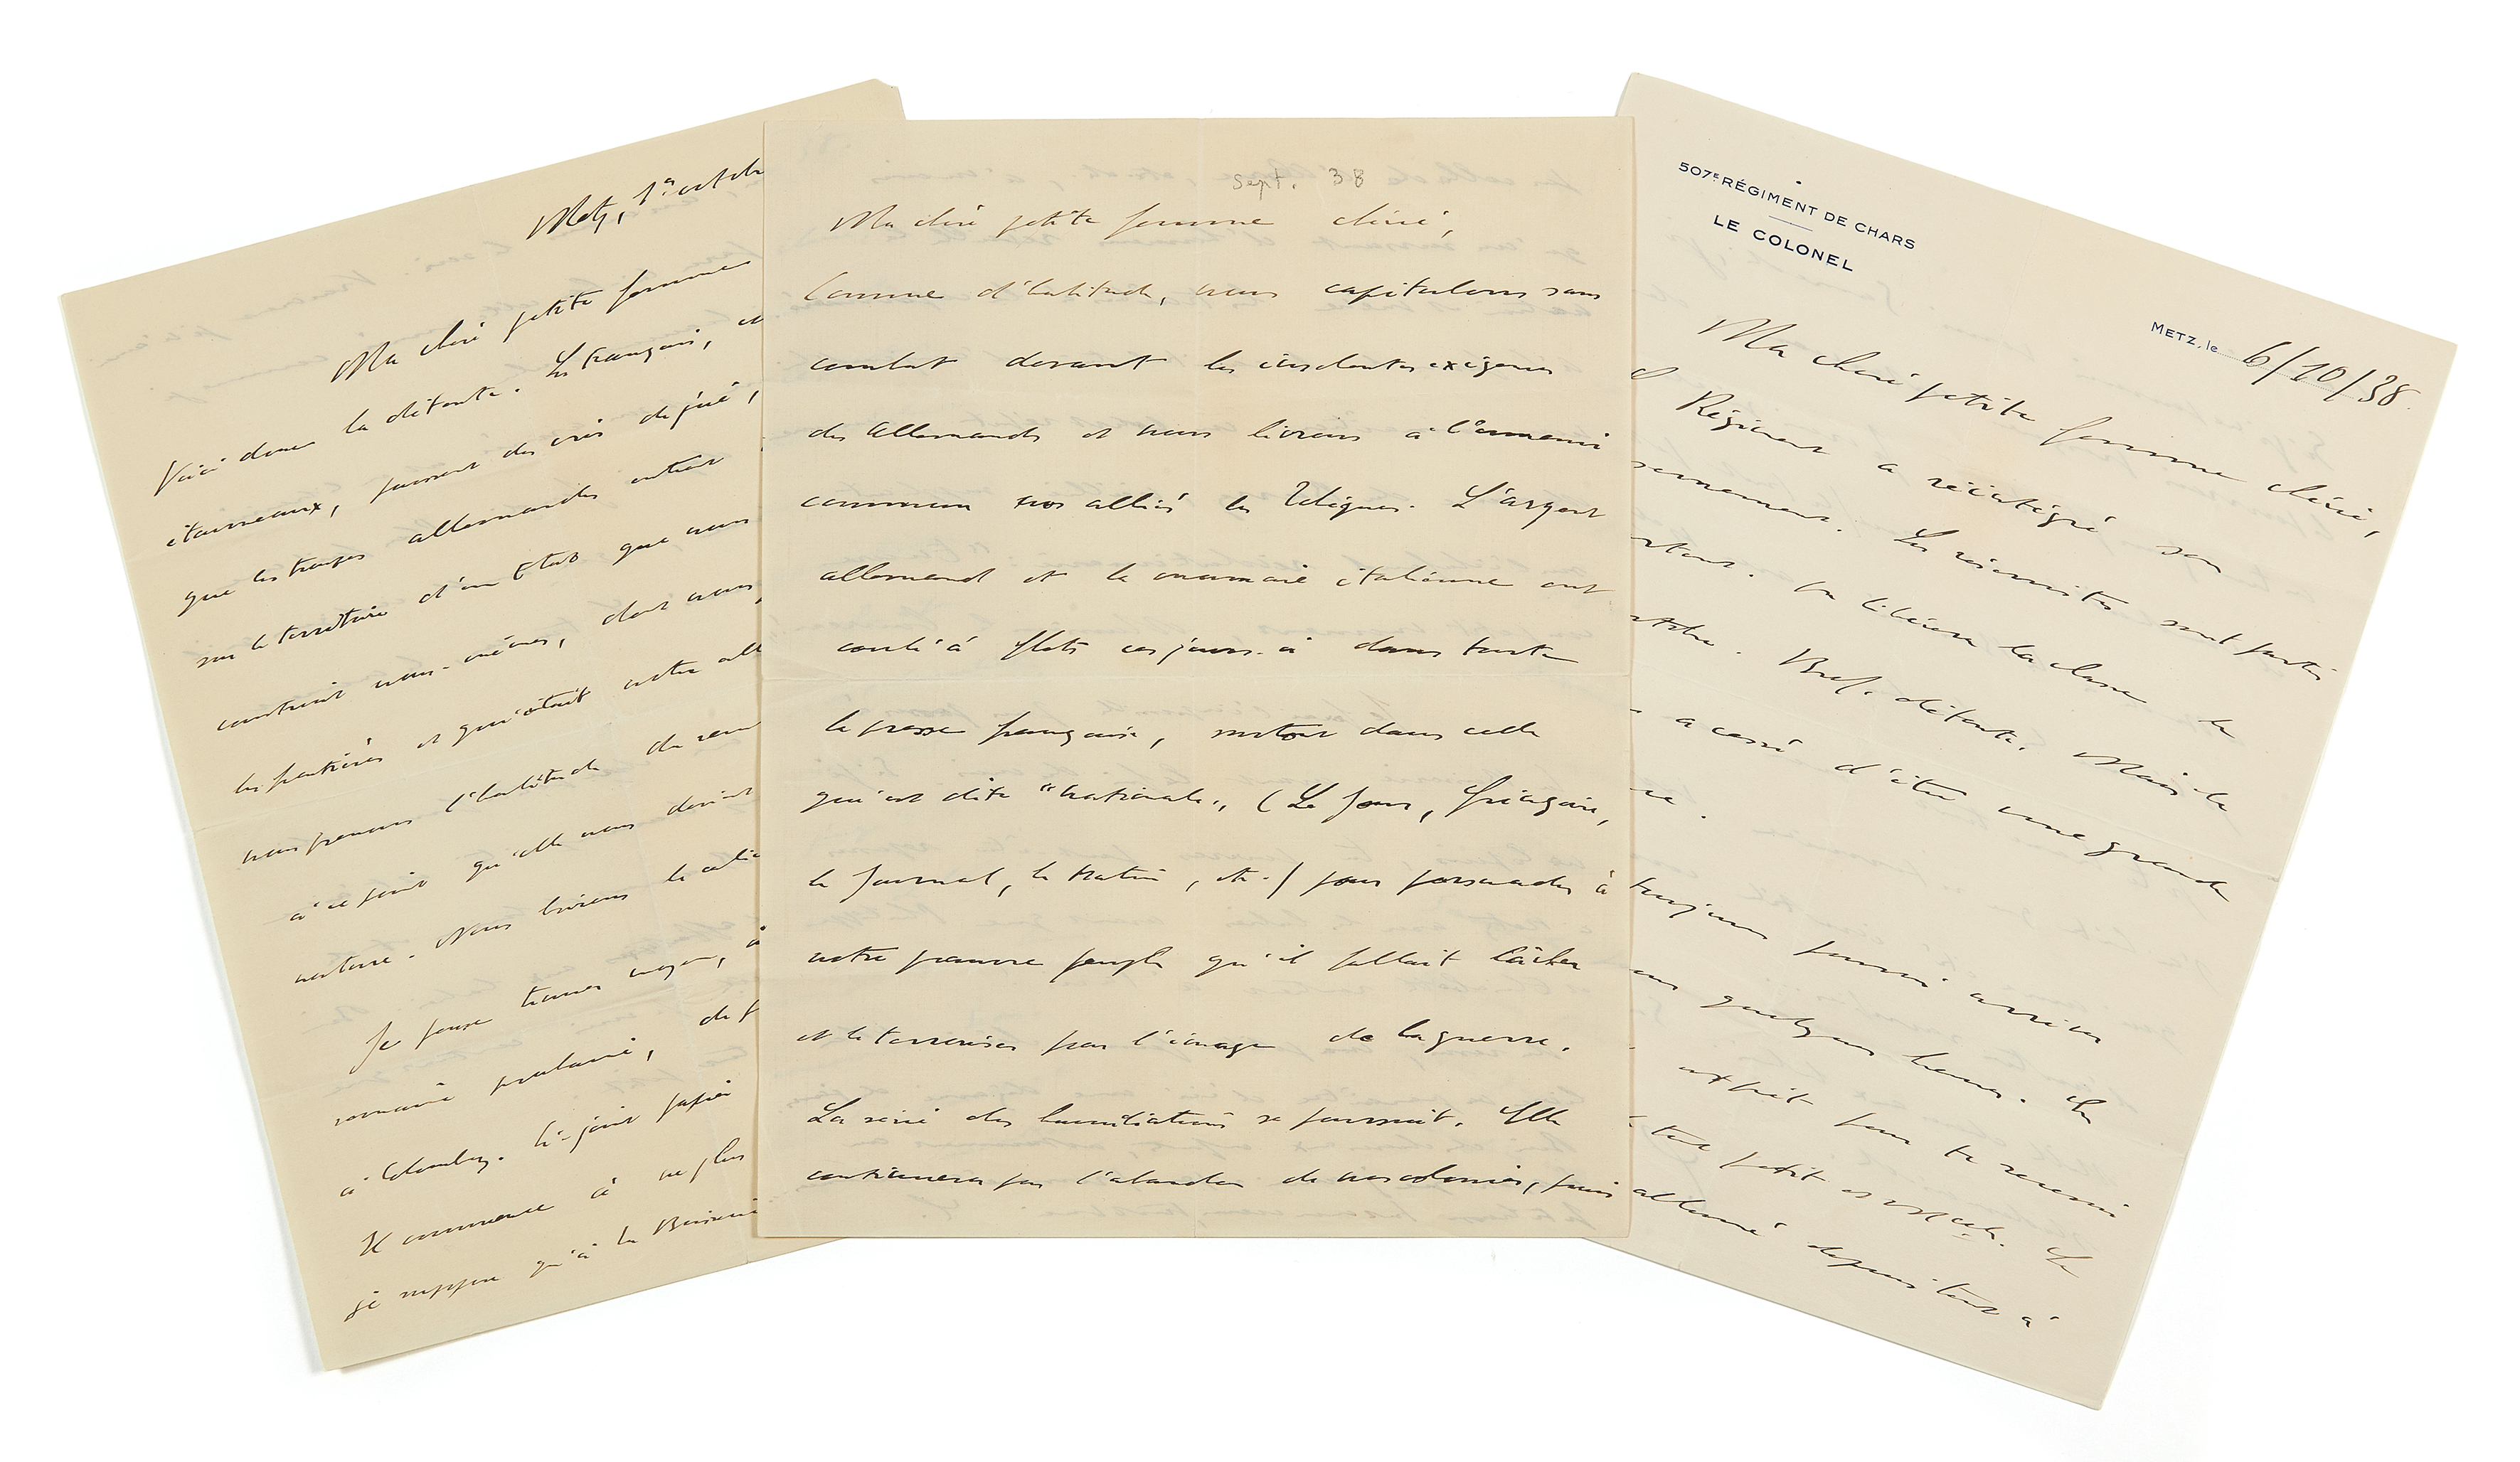 Metz, 1er octob
Ma chère petite femme
Voici donc la détente. Les Français, en
étourneaux, poussent des cris de joie,
que les troupes allemandes entrent
sur le territoire d'un Etat que nous
construit nous-mêmes, dont nous
les frontières et qui était notre all
nous prenons l'habitude du recul
à ce point qu'elle nous devient
nature. Nous boirons le calice
Je pense trouver moyen, à
semaine prochaine, de f
à Colombey. Ci-joint papier
Il commence à ne plus
je suppose qu'à la Boisserie
sept. 38
Ma chère petite femme chérie,
Comme d'habitude, nous capitulons sans
combat devant les insolentes exigences
des Allemands et nous livrons à l'ennemi
commun nos alliés les Tchèques. L'argent
allemand et la monnaie italienne ont
coulé à flots ces jours-ci dans toute
la presse française, surtout dans celle
qui est dite "nationale" (Le Jour, Gringoire,
le Journal, le Matin, etc.) pour persuader à
notre pauvre peuple qu'il fallait lâcher
et le terroriser par l'image de la guerre.
La série des humiliations se poursuit. Elle
continuera par l'abandon de nos colonies, puis
507E RÉGIMENT DE CHARS
LE COLONEL
METZ, le 6/10/38.
Ma chère petite femme chérie,
Régiment a réintégré son
sernement. Les réservistes sont partis
On libère la classe le
Bref, détente. Mais la
a cessé d'être une grande
toujours pouvoir arriver
quelques heures. Un
est prêt pour te recevoir
Tout petit est installé. Le
allumé depuis tout à